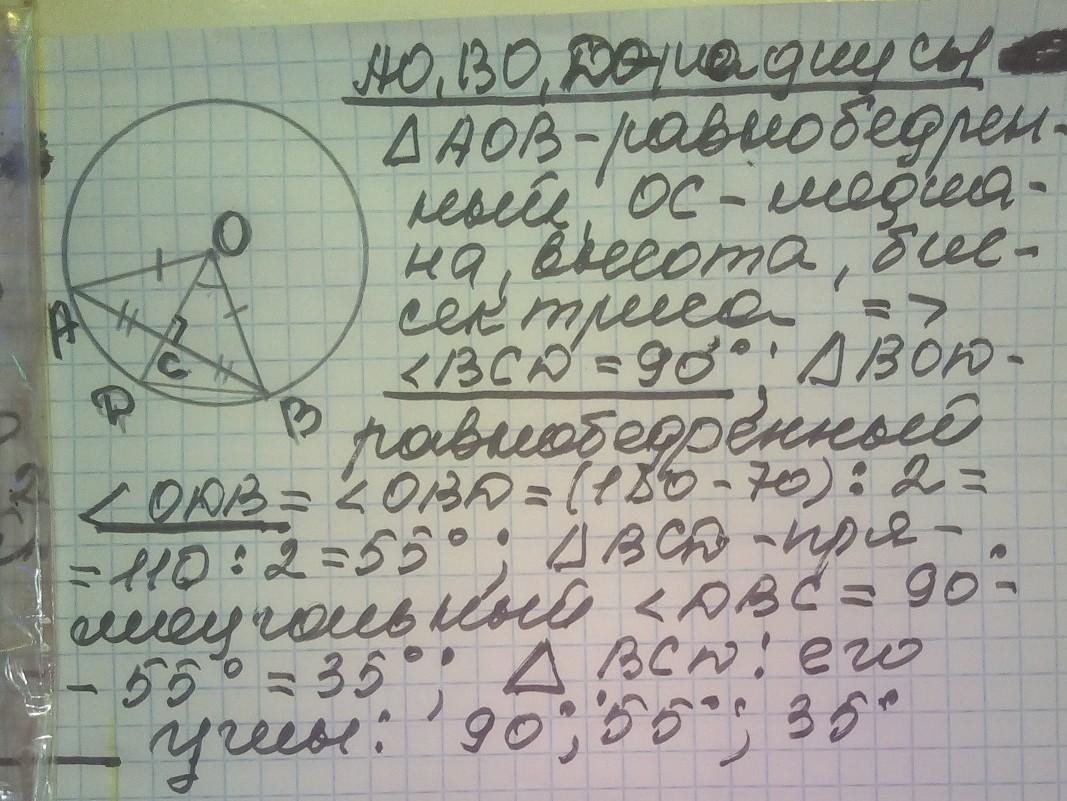 AO, BO, DO, радиусы
∆AOB - равнобедрен-
ный, OC - медиа-
на, высота, бис-
сектриса =>
<BCD = 90°; ∆BOD -
равнобедренный
<ODB = <OBD = (180 - 70) : 2 =
= 110 : 2 = 55°; ∆BCD - пря-
моугольный <DBC = 90° -
- 55° = 35°; ∆ BCD: его
углы: 90°; 55°; 35°
O
A
C
D
B